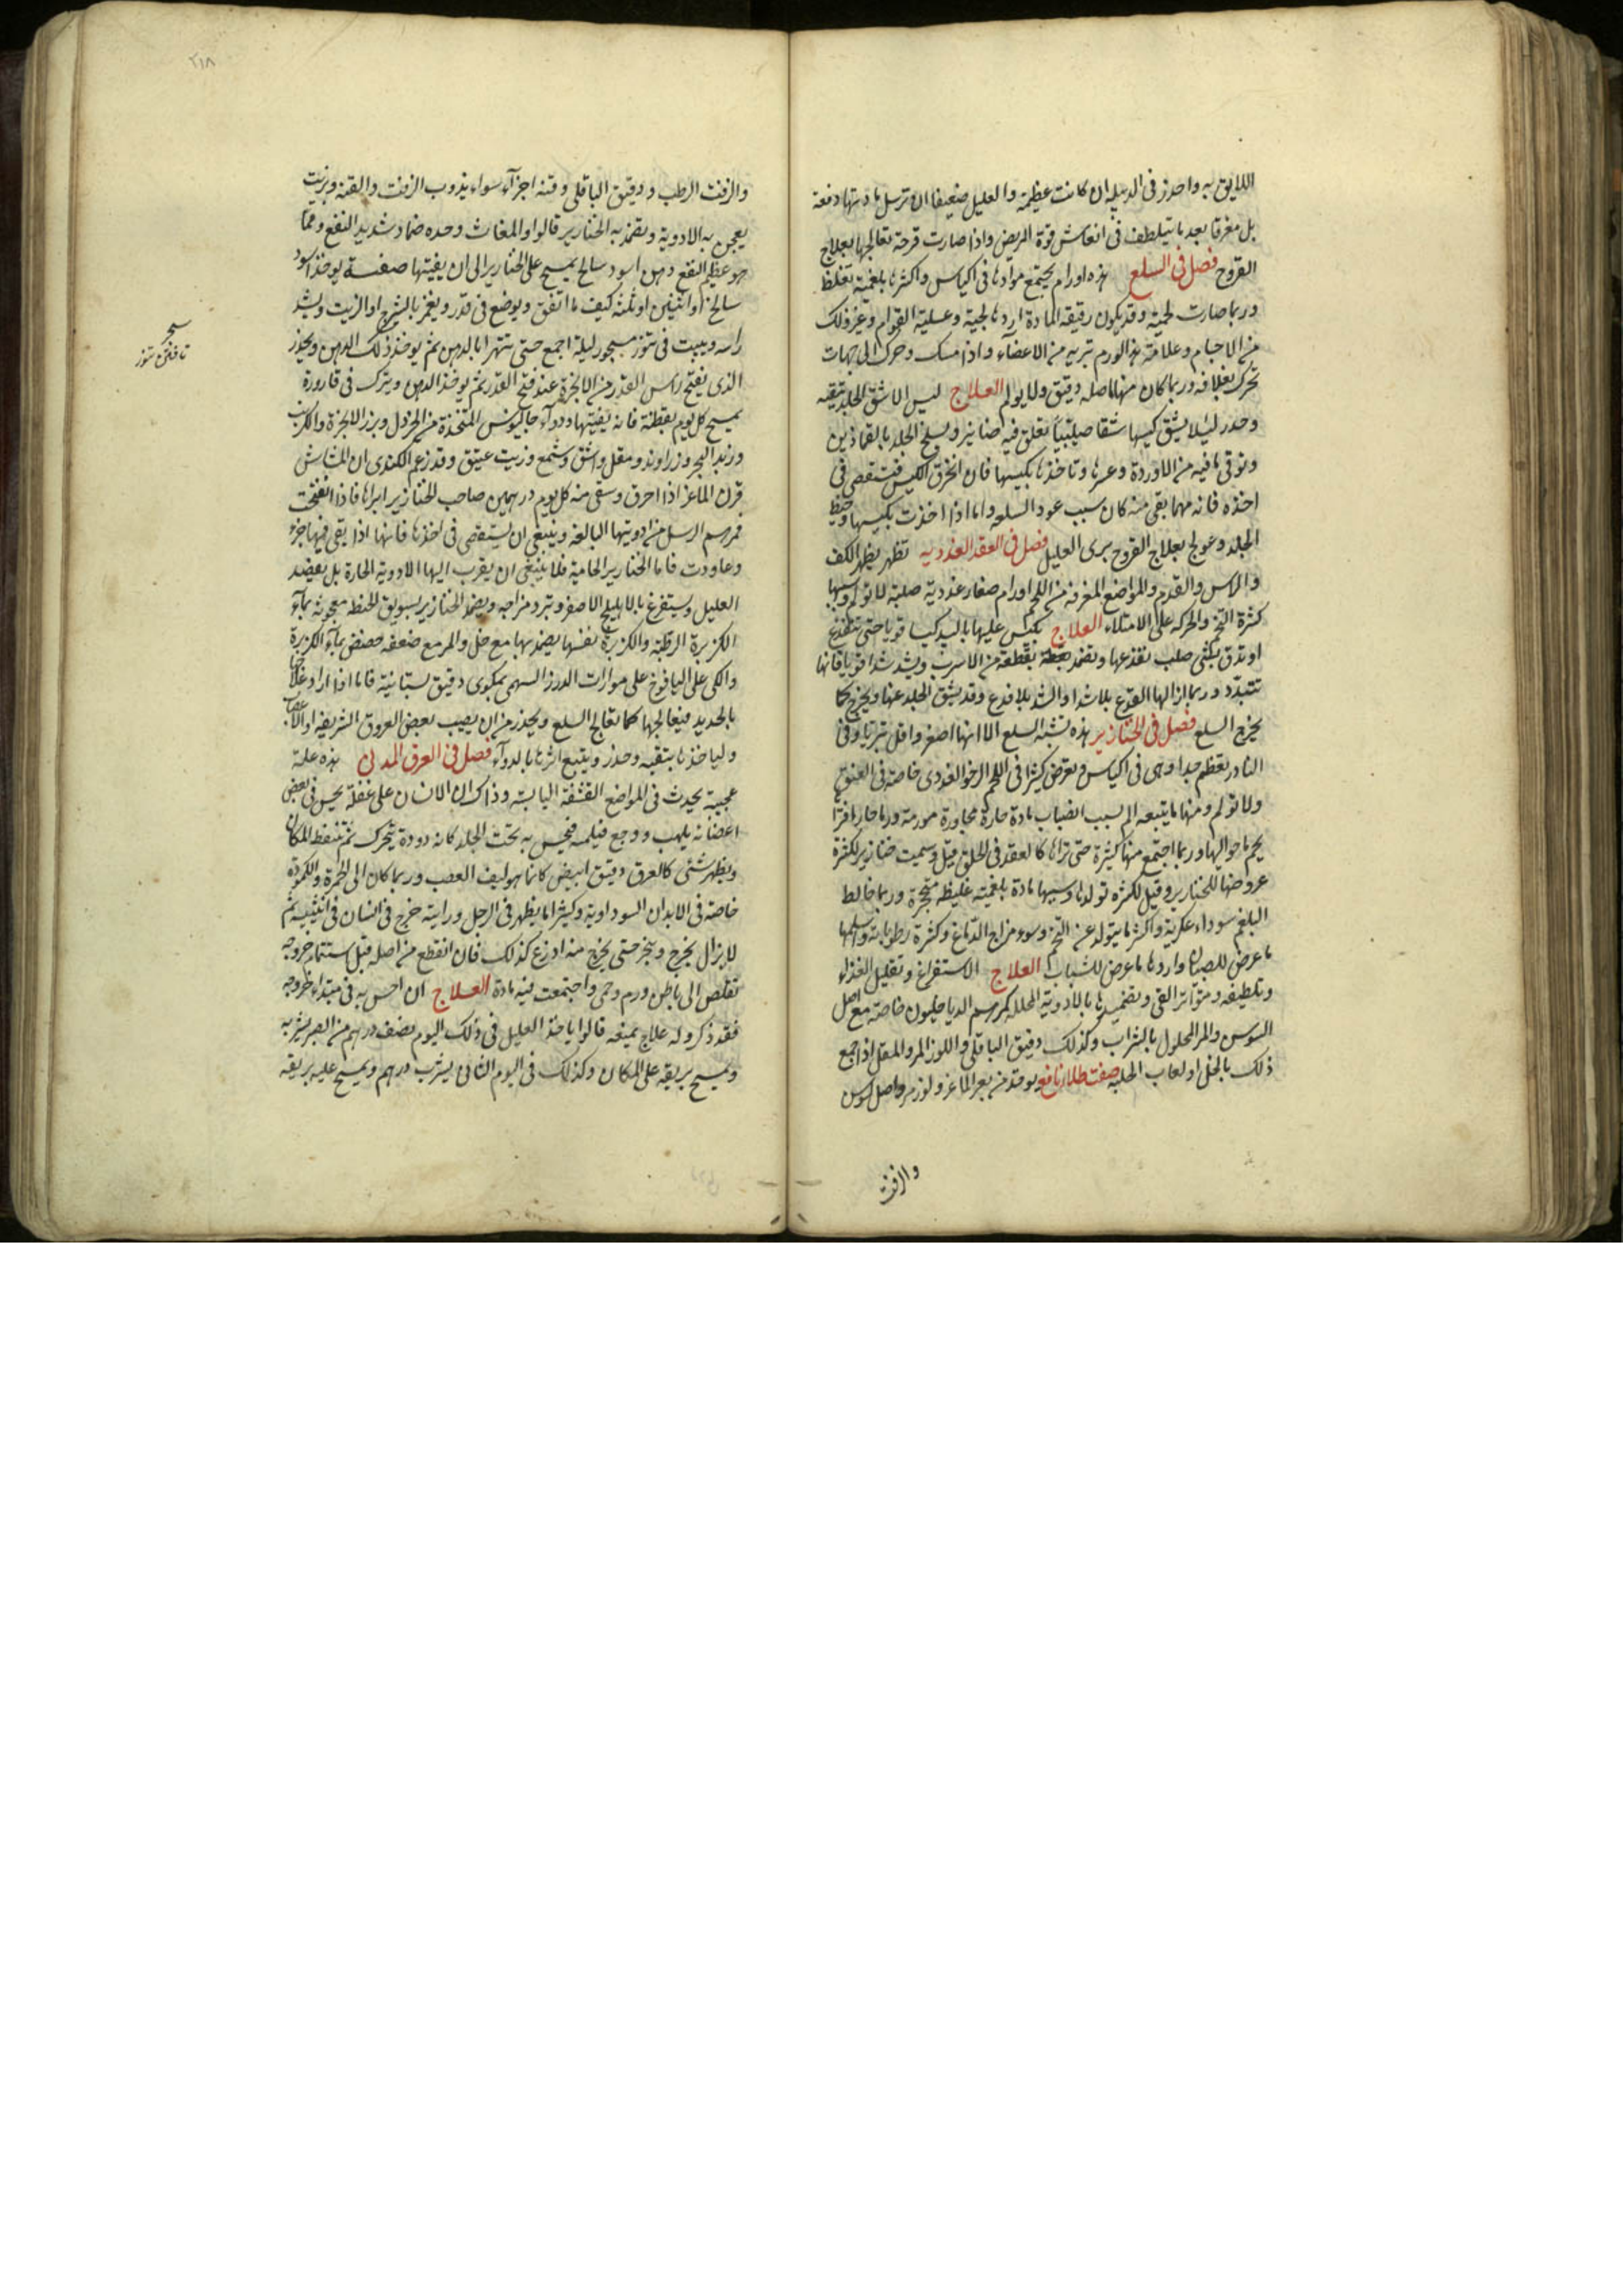 اللايق به واحذر فى الدبيله ان كانت عظيمة والعليل ضعيفا ان ترسل مادتها دفعة
بل مفرقا بعد ما تتلطف فى انعاش قوة المريض واذا صارت قرحة تعالجها بعلاج
القروح فصل فى السلع هذه اورام يجتمع موادها فى اكياس واكثرها بلغمية تغلظ
وربما صارت لحمية وقد يكون رقيقه المادة اردهالجية وعسلية القوام وغير ذلك
من الاجسام وعلامة هذا الورم تبريه من الاعضآء واذا مسك وحرك الى جهات
تحرك بغلافه وربما كان منها ما اصله دقيق ولا يولم العلاج ليس الا شق الجلد بتقيه
وحذر ليلا ينشق كيسها شقا صليبيا تعلق فيه صنانير ويسلخ الجلد بالقمادين
وتوقى ما فيه من الاوردة وغيرها وتاخذها بكيسها فان انخرق الكيس فتستقصى فى
اخذه فانه مهما بقى منه كان سبب عود السلعه واما اذا اخذت بكيسها وخيط
الجلد وعولج بعلاج القروح برى العليل فصل فى العقد الغدديه تظهر بظهر الكف
والراس والقدم والمواضع المعرفة من اللحم اورام صغار غددية صلبة لا تولم وسببها
كثرة التخم والحركه على الامتلاء العلاج يكبس عليها باليد كبسا قويا حتى تتفدغ
او تدق بشى صلب تفدغها وتضمد بقطعة من الاسرب ويشد شدا قويا فانها
تتبدد وربما ازالها الفدغ بلا شد او الشد بلا فدغ وقد يشق الجلد عنها ويخرج كما
يخرج السلع فصل فى الخنازير هذه تشبه السلع الا انها اصغر واقل تبريا وفى
النادر تعظم جدا وهى فى اكياس وتعرض كثيرا فى اللحم الرخو الغددى خاصة فى العنق
ولا تولم ومنها ما يتبعه الم بسبب انصباب مادة حارة مجاورة مورمة ورما حارا فترا
يحم ما حوالها وربما اجتمع منها كثيرة حتى تراها كالعقد فى الحلق قيل وسميت خنازير لكثرة
عروضها للخنازير وقيل لكثره تولدها وسببها مادة بلغمية غليظه متحجرة وربما خالط
البلغم سوداء عكرية واكثرها يتولد عن التخم وسوء مزاج الدماغ وكثرة رطوباته واسلمها
ما عرض للصبيان وارداها ما عرض للشباب العلاج الاستفراغ وتقليل الغذاء
وتلطيفه ومتواتر القى وتضميدها بالادوية المحلله كمرهم الدياخليون خاصة مع اصل
السوس والمر المحلول بالشراب وكذلك دقيق الباقلى واللوز المر والمقل اذا جمع
ذلك بالخل او لعاب الحلبه صفت طلاء نافع يوخذ من بعر الماعز ولوز مر واصل سوس
والزفت
٢١٨
والزفت الرطب ودقيق الباقلى وقنه اجزآء سواء يذوب الزفت والقنه وبزيت
يعجن به الادوية وتضمد به الخنازير قالوا والمغاث وحده ضماد شديد النفع ومما
هو عظيم النفع دهن اسود سالخ يمسح على الخنازير الى ان يفيتها صفته يوخذ اسود
سالخ او اثنين او ثلثة كيف ما اتفق ويوضع فى قدر ويغمر بالشيرج او الزيت ويشد
راسه ويبيت فى تنور مسجور ليلة اجمع حتى يتهرا بالدهن ثم يوخذ ذلك الدهن ويحذر
الذى يفتح راس القدر من الابخرة عند فتح القدر ثم يوخذ الدهن ويترك فى قارورة
يمسح كل يوم بقطنة فانه يفيتها ودوآء جالينوس المتخذة من الخردل وبزر الانجرة والكبريت
وزبد البحر وزراوند ومقل واشق وشمع وزيت عتيق وقد زعم الكندى ان المشاش
قرن الماعز اذا احرق وسقى منه كل يوم درهمين صاحب الخنازير ابراها فاذا انفتحت
فمرهم الرسل من ادويتها البالغة وينبغى ان يستقصى فى اخذها فانها اذا بقى فيها جزء
وعاودت فاما الخنازير الحامية فلا ينبغى ان يقرب اليها الادوية الحارة بل يفصد
العليل ويستفرغ بالاهليلج الاصفر وتبرد مزاجه ويضمد الخنازير بسويق الحنطه معجونه بمآء
الكزبرة الرطبة والكزبرة نفسها يضمد بها مع خل والمر مع ضعفه حضض بمآء الكزبرة
والكى على اليافوخ على موازات الدرز السهمى بمكوى دقيق بستانية فاما اذا اراد علاجها
بالحديد فيعالجها كما تعالج السلع ويحذر من ان يصيب لعض العروق الشريفه او الاعصاب
ولياخذها بتقيه وحذر ويتبع اثرها بالدوآء فصل فى العرق المدنى هذه علة
عجيبة يحدث فى المواضع القشفة اليابسة وذاك ان الانسان على غفلة يحس فى بعض
اعضائه بلهب ووجع فيلمسه فيحس به تحت الجلد كانه دودة يتحرك ثم تنفط المكان
ويظهر شئ كالعرق دقيق ابيض كانما هو ليف العصب وربما كان الى الحمرة والكمودة
خاصة فى الابدان السوداوية وكثيرا ما يظهر فى الرجل ورايته خرج فى انسان فى انثييه ثم
لا يزال يخرج ويبخر حتى يخرج منه اذرع كذلك فان انقطع من اصله قبل استتمام خروجه
تقلص الى باطن ورم وحمى واجتمعت فيه مادة العلاج ان احس به فى مبتداء خروجه
فقد ذكر وله علاج يمنعه قالوا ياخذ العليل فى ذلك اليوم نصف درهم من الصبر يشربه
ويمسح بريقه على المكان وكذلك فى اليوم الثانى يشرب درهم ويمسح عليه بريقه